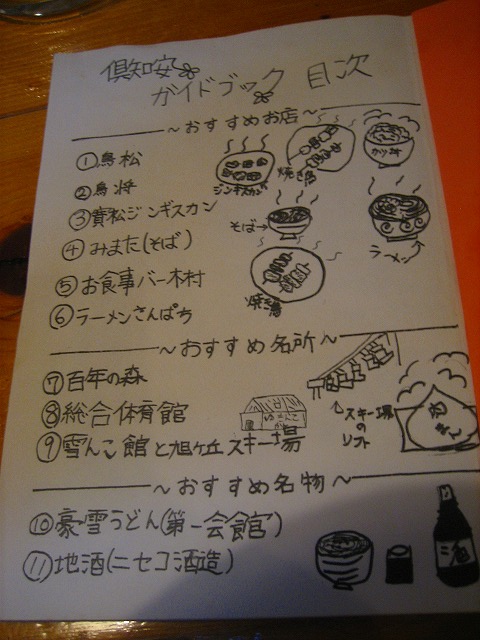 倶知安
ガイドブック 目次
～おすすめお店～
①鳥松
②鳥将
③貴松ジンギスカン
④みまた(そば)
⑤お食事バー木村
⑥ラーメンさんぱち
ジンギスカン
焼き鳥
カツ丼
そば→
ラーメン
焼き鳥
～おすすめ名所～
⑦百年の森
⑧総合体育館
⑨雪んこ館と旭ヶ丘スキー場
スキー場
の
リフト
～おすすめ名物～
⑩豪雪うどん(第一会館)
⑪地酒(ニセコ酒造)
酒